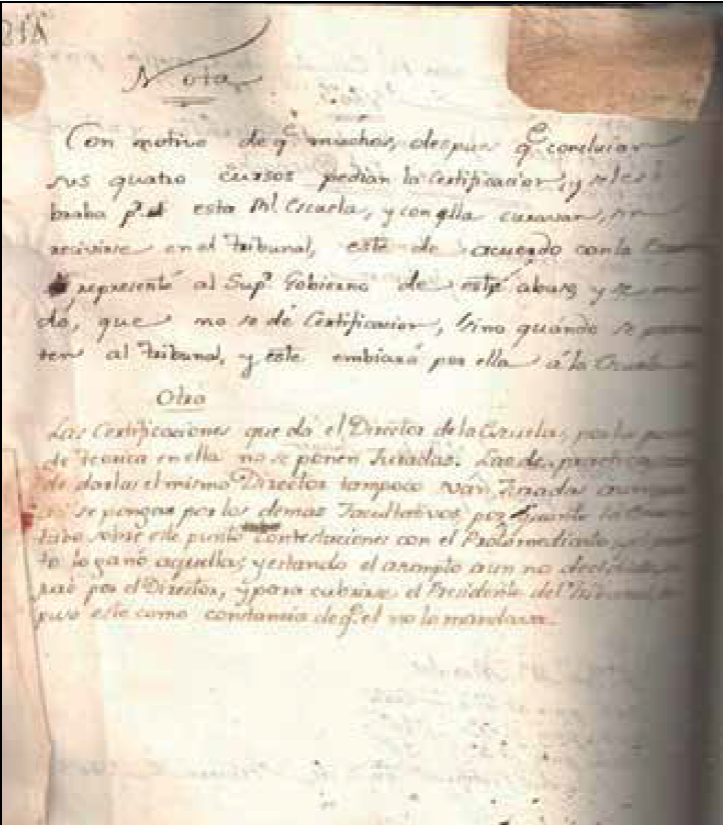 218
Nota
Con motivo de q.e muchos, despues q.e concluian
sus quatro cursos pedian la Certificacion, y se les
braba p.r esta Rl. Escuela, y con ella curavan, sin
recivirse en el Tribunal, este de acuerdo con la
representó al Sup.r Gobierno de este abuso, y se man
dó, que no se dé Certificacion, sino quándo se presen
ten al Tribunal, y este embiará por ella á la Escuela
Otra
Las Certificaciones que dá el Director de la Escuela, por la parte
de teorica en ella no se ponen Juradas. Las de practica,
de darlas el mismo Director tampoco ván Juradas aunque
se pongan por los demas Facultativos, por quanto la
tubo sobre este punto Contestaciones con el Protomedicato,
to lo ganó aquella; y estando el asumpto aun no decidido,
por el Director, y para cubrirse el Presidente del Tribunal,
puso este como constancia de q.e el no lo mandara.